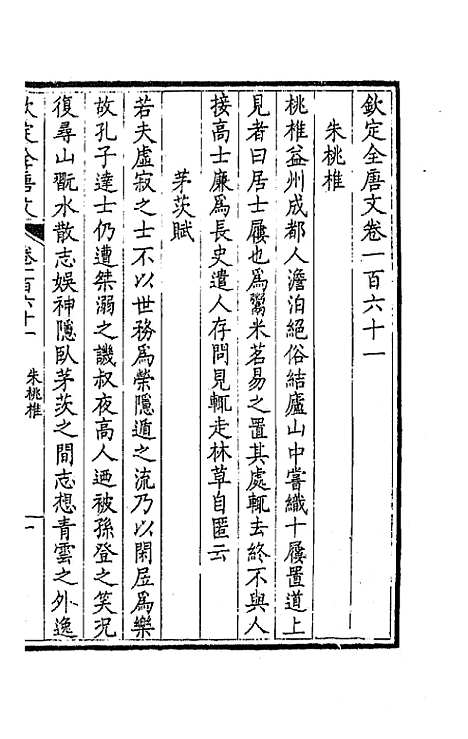 欽定全唐文卷一百六十一
朱桃椎
桃椎益州成都人澹泊絕俗結廬山中嘗織十屨置道上
見者曰居士屨也為鬻米茗易之置其處輒去終不與人
接高士廉為長史遣人存問見輒走林草自匿云
茅茨賦
若夫虛寂之士不以世務為榮隱遁之流乃以閑居為樂
故孔子達士仍遭桀溺之譏叔夜高人迺被孫登之笑況
復尋山翫水散志娛神隱臥茅茨之間志想青雲之外逸
欽定全唐文 卷一百六十一 朱桃椎 一